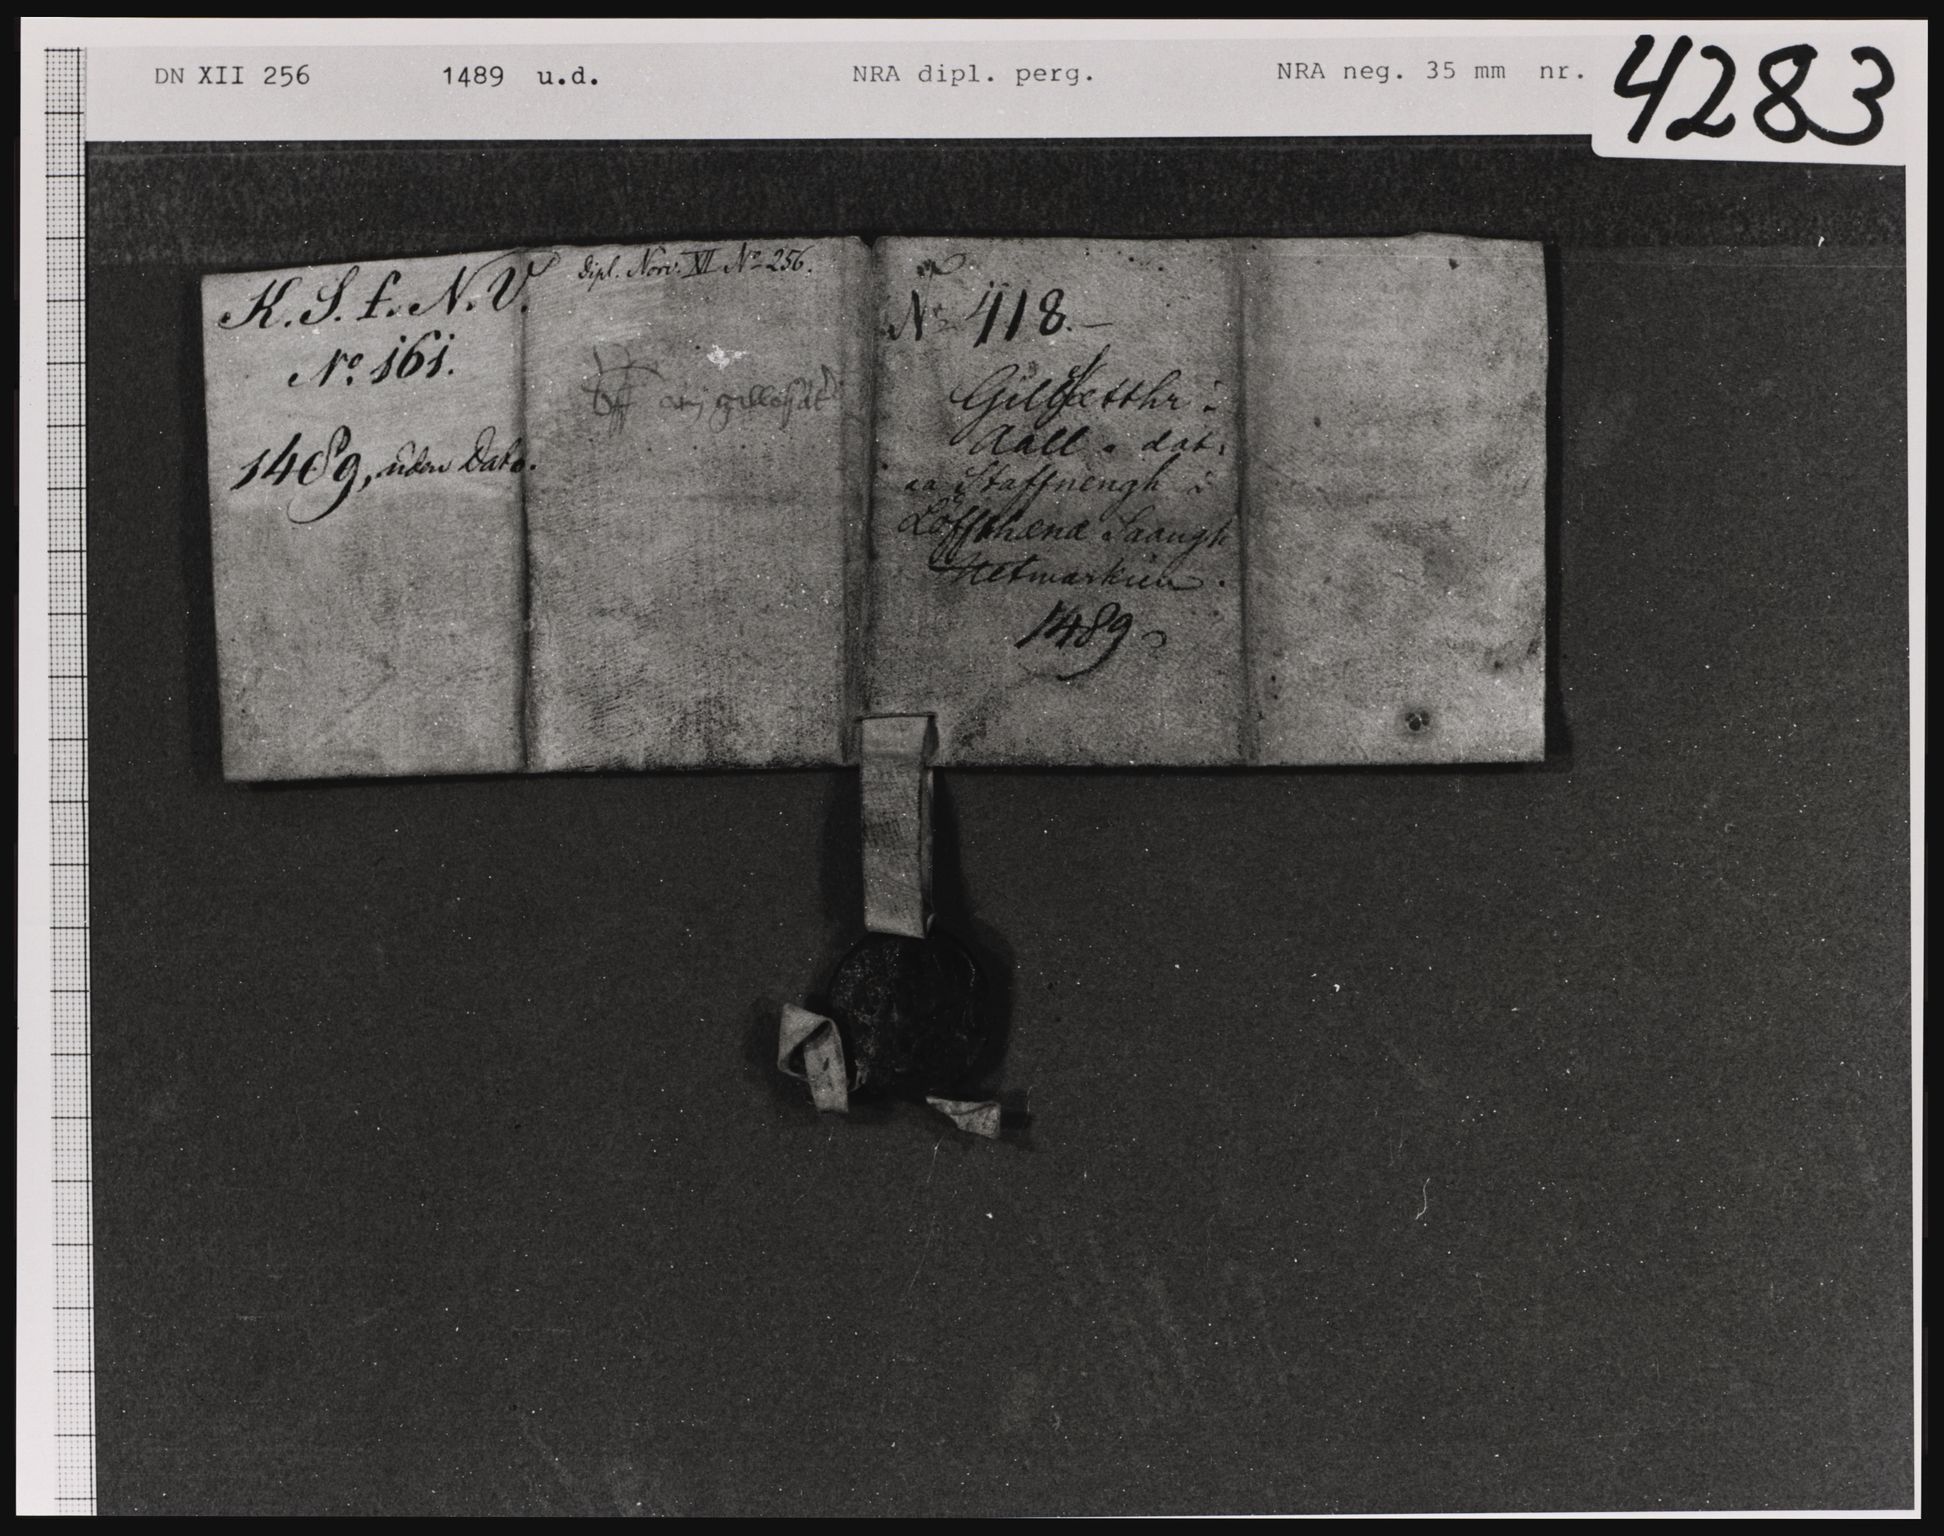 DN XII 256 1489 u.d. NRA dipl. perg. NRA neg. 35 mm nr. 4283
K. S. f. N. V.
No. 161.
1489, uden Dato.
Dipl. Norv. XII No 256.
No 418.
i
Aall . dat.
aa Staffnengh i
Löffthæna Saangh
Hetmarkien.
1489